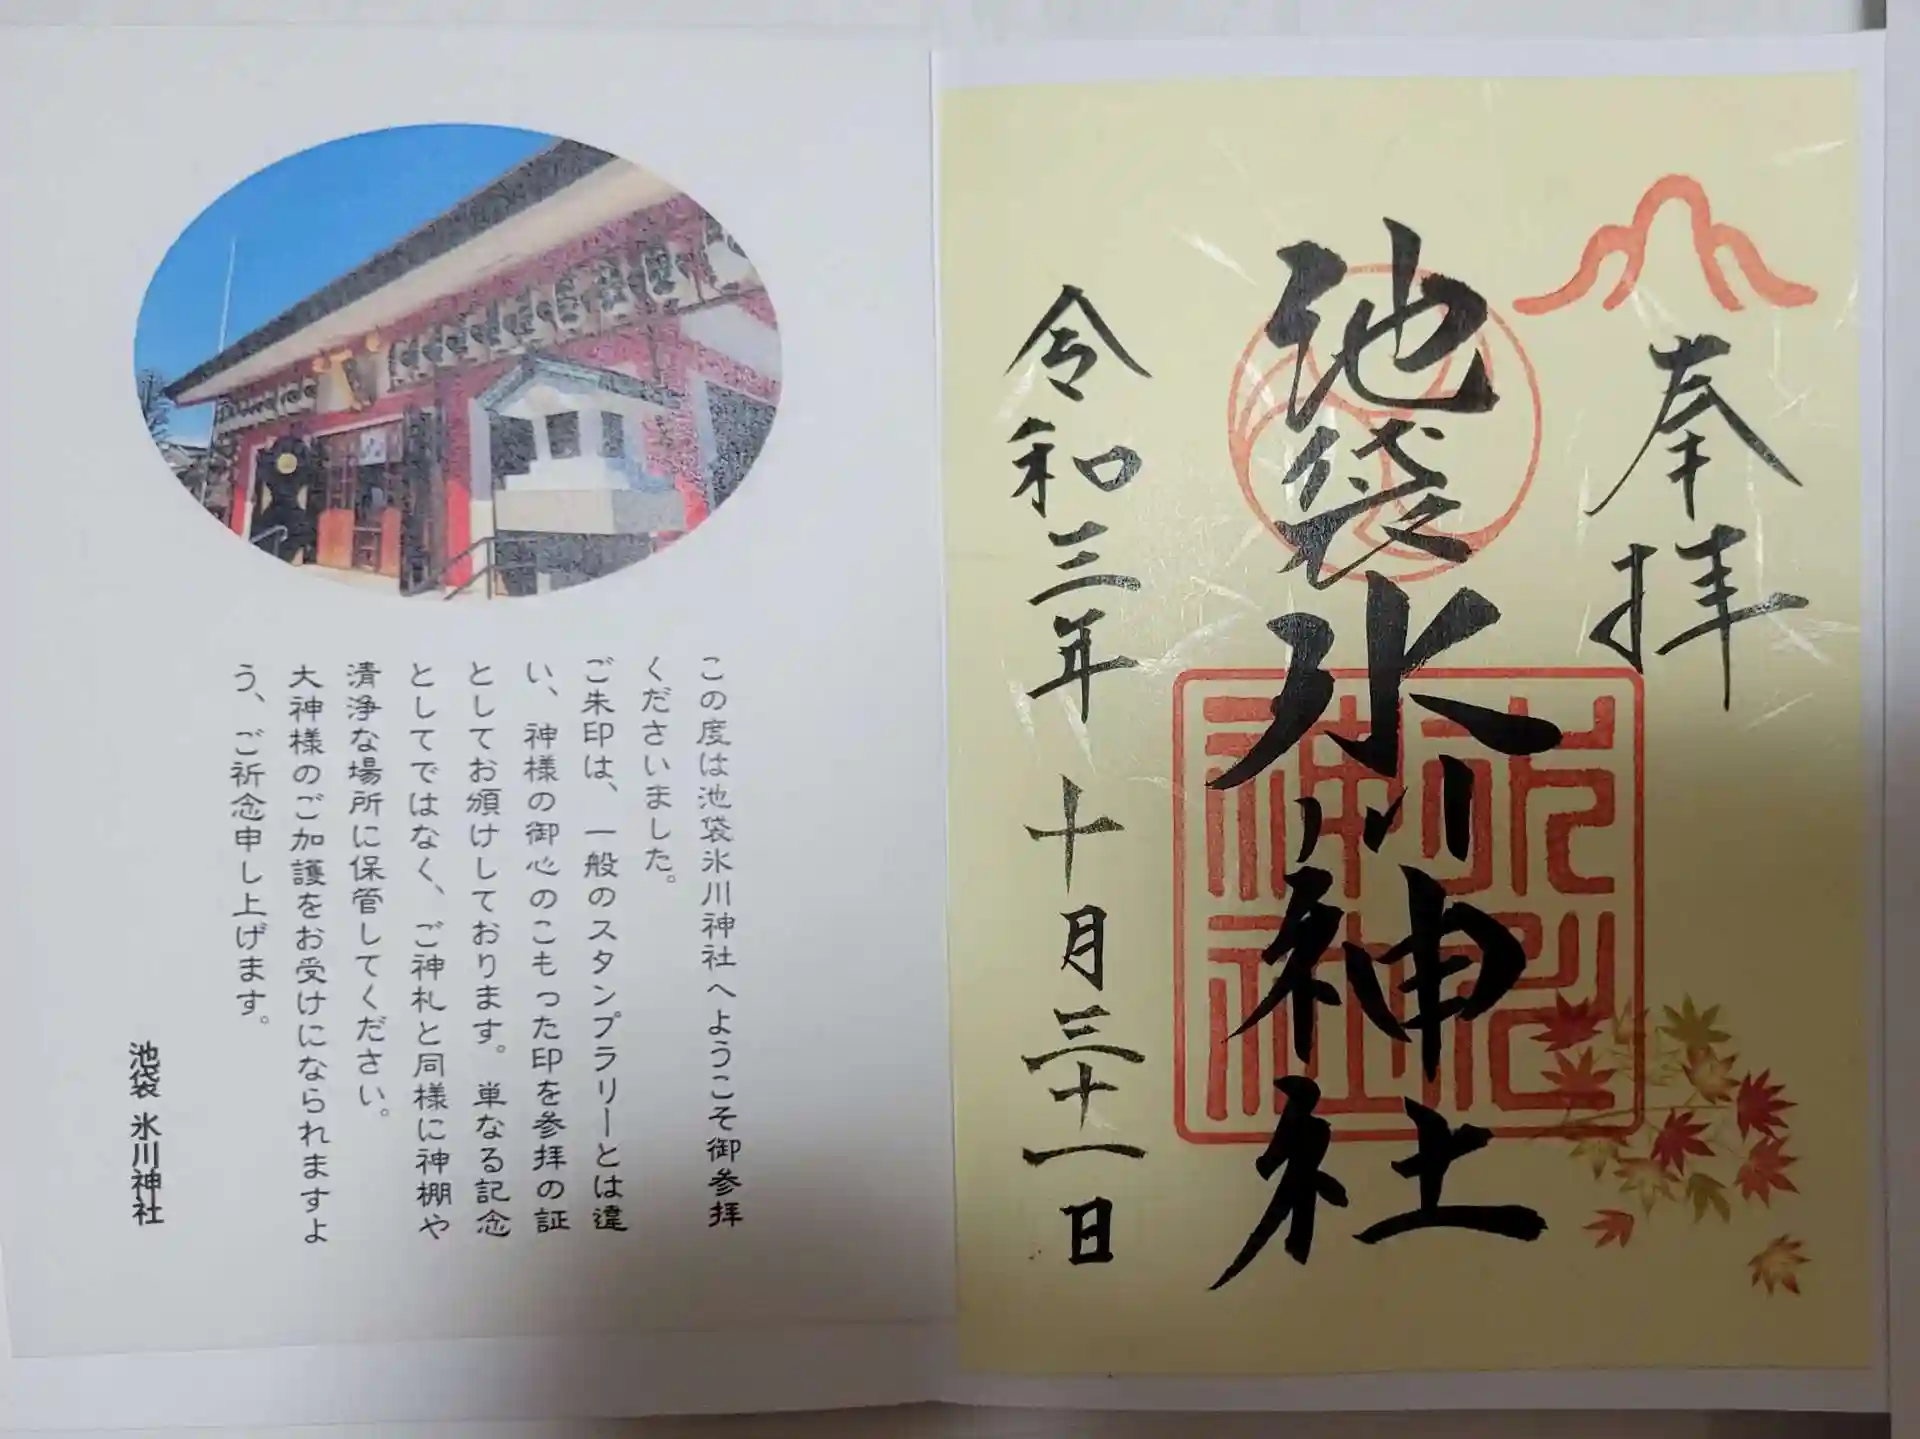 奉拝
池袋氷川神社
氷川神社
令和三年 十月三十一日
この度は池袋氷川神社へようこそ御参拝
くださいました。
ご朱印は、一般のスタンプラリーとは違
い、神様の御心のこもった印を参拝の証
としてお頒けしております。単なる記念
としてではなく、ご神札と同様に神棚や
清浄な場所に保管してください。
大神様のご加護をお受けになられますよ
う、ご祈念申し上げます。
池袋 氷川神社